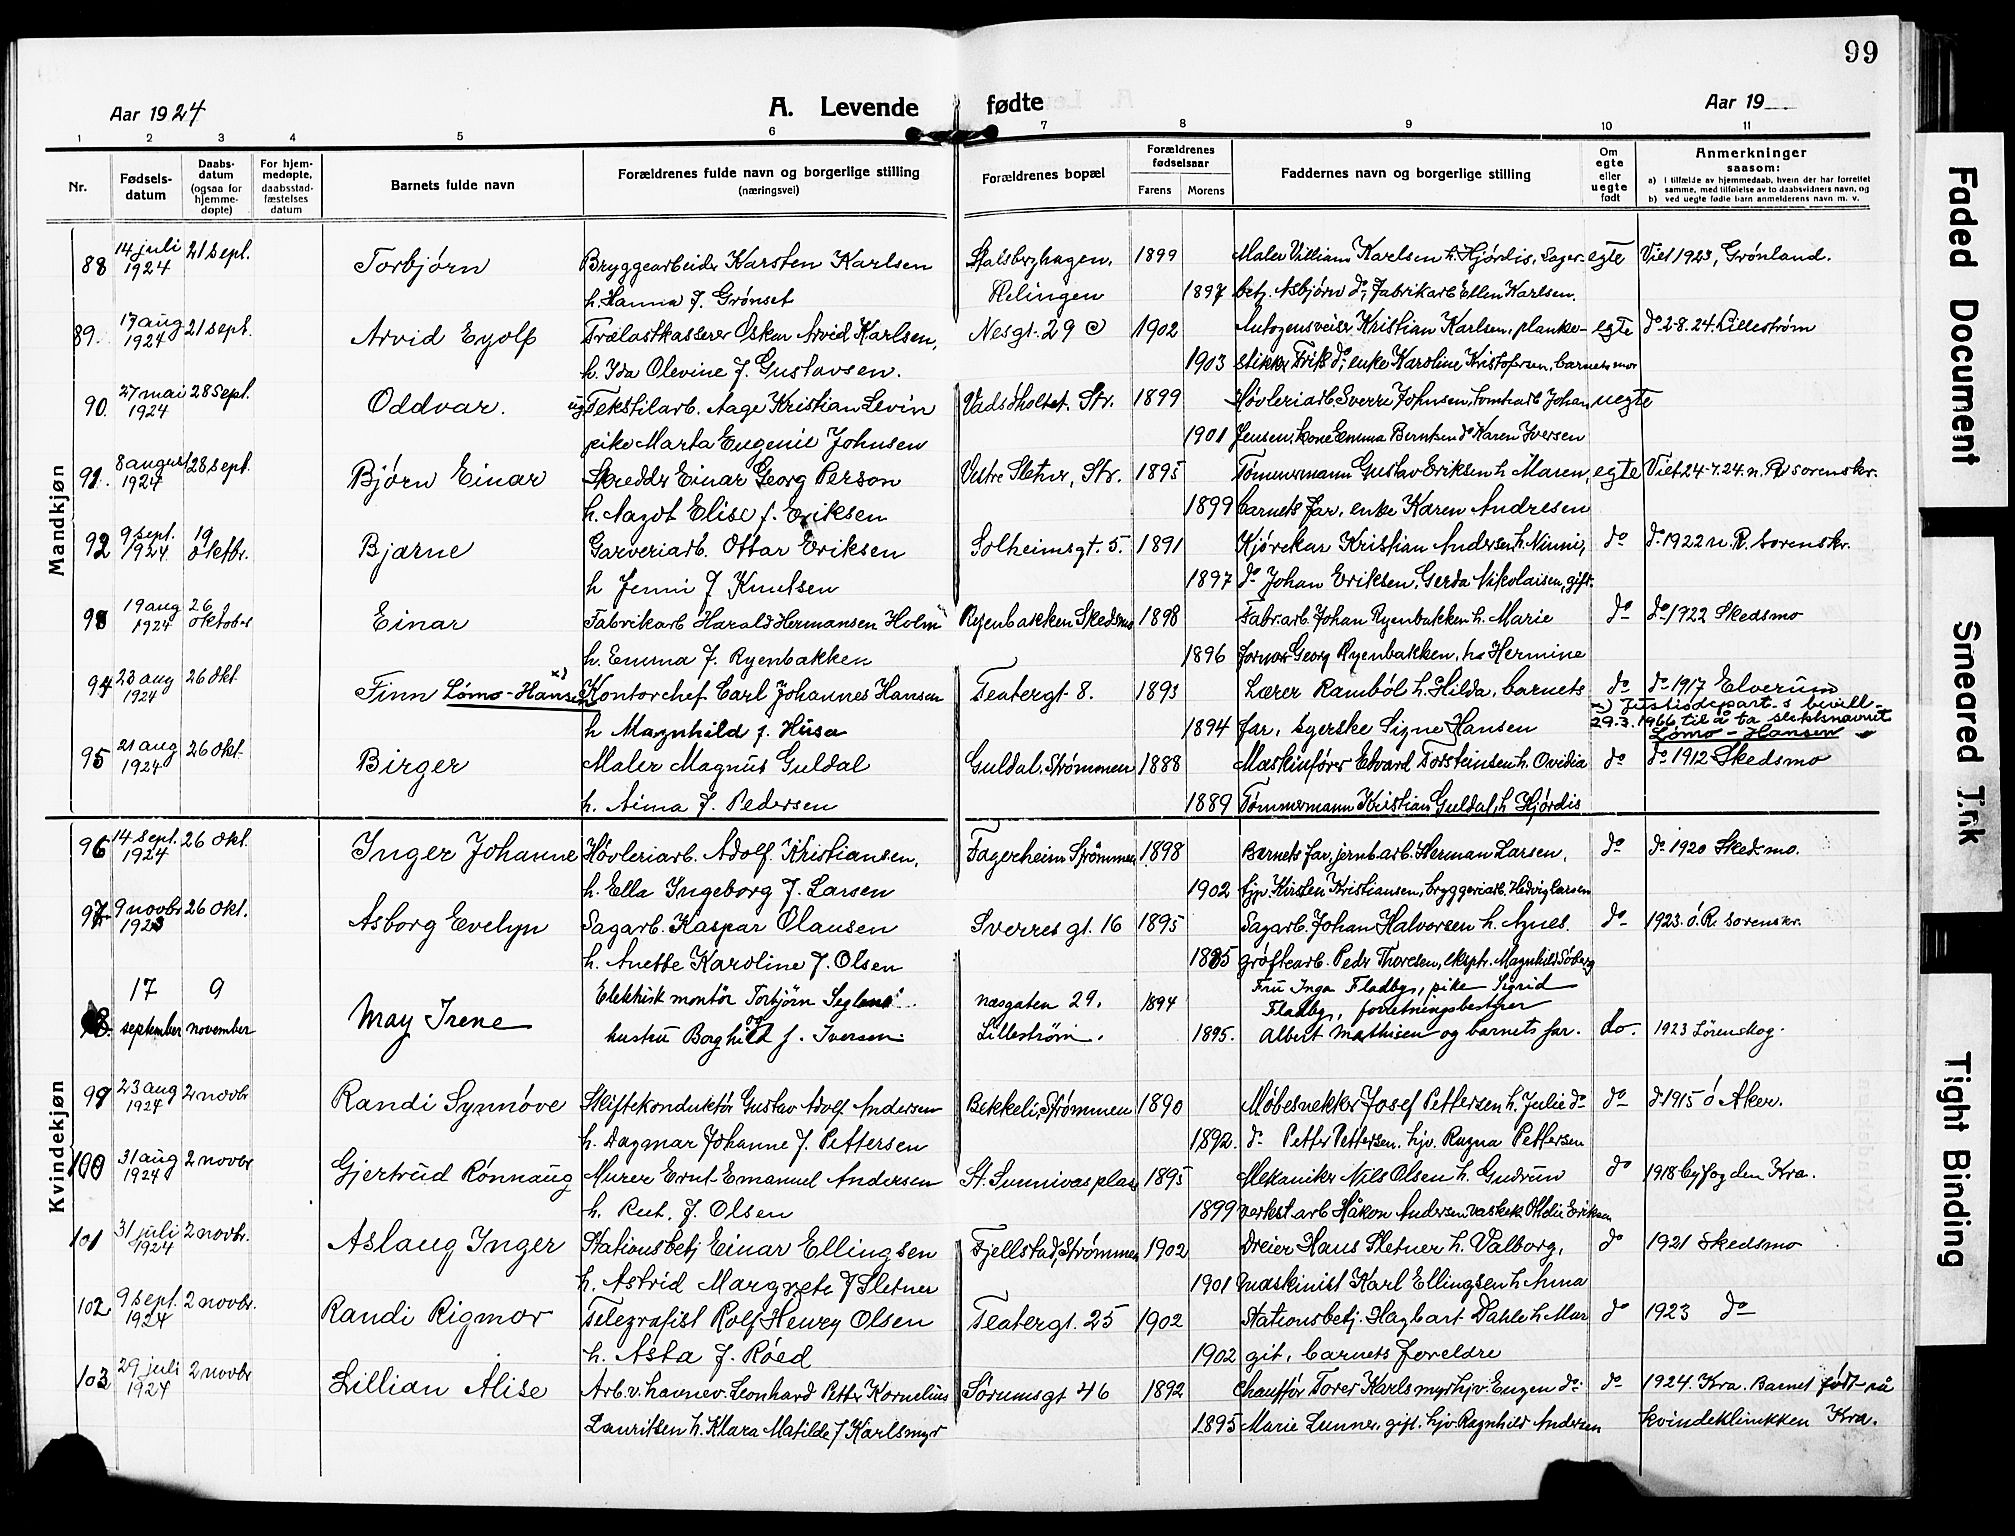 99
Aar 1924 A. Levende fødte Aar 19
1 2 3 4 5 6 7 8 9 10 11
Nr. Fødsels-datum Daabs-datum (ogsaa for hjemme-døpte) For hjem-medøpte, daabsstad-fæstelses datum Barnets fulde navn Forældrenes fulde navn og borgerlige stilling (næringsvei) Forældrenes bopæl Forældrenes fødselsaar Farens Morens Faddernes navn og borgerlige stilling Om egte eller uegte født Anmerkninger saasom:
a) i tilfælde av hjemmedaab, hvem der har forrettet samme, med tilføielse av to daabsvidners navn, og
b) ved uegte fødte barn anmelderens navn m. v.
Mandkjøn
88 14 juli 1924 21 sept. Torbjørn Bryggearbeider Karsten Karlsen Stalsberghagen, 1899 Maler Villiam Karlsen h. Hjørdis, Lager- egte Viet 1923, Grønland.
h. Hanna f. Grønset Relingen 1897 betj. Asbjørn do, fabrikarb Ellen Karlsen.
89. 17 aug 1924 21 sept. Arvid Eyolf Trælastkasserer Oskar Arvid Karlsen, Nesgt. 29 c 1902 Autogensveiser Kristian Karlsen, planke- egte do 2-8.24. Lillestrøm
h. Ida Olevine f. Gustavsen. 1903 stikker Erik do, enke Karoline Kristofersen, barnets mor
90. 27 mai 1924 28 sept. Oddvar. ug Tekstilarb. Aage Kristian Levin Vadsholtet. Str. 1899 Høvleriarb. Sverre Johnsen, tomtearb Johan uegte
pike Marta Eugenie Johnsen 1901 Jensen, kone Emma Berntsen do Karen Iversen
91. 8 august 1924 28 sept. Bjørn Einar Skredder Einar Georg Person Vestre Sletner, Str. 1895 Tømmermann Gustav Eriksen h. Maren, egte Viet 24-7.24. n. R sorenskr.
h. Nazot Elise f. Eriksen 1899 barnets far, enke Karen Andresen
92 9 sept. 1924 19 oktbr. Bjarne Garveriarb. Ottar Eriksen Solheimsgt. 5. 1891 Kjørekar Kristian Andersen h. Ninni, do do 1922 n. R. sorenskr.
h Jenni f Knutsen 1897 do Johan Eriksen, Gerda Nikolaisen, gift.
93 19 aug 1924 26 oktober Einar Fabrikarb Harald Hermansen Holm Ryenbakken Skedsmo 1898 Fabr.arb. Johan Ryenbakken h. Marie do do 1922 Skedsmo
h. Emma f. Ryenbakken 1896 forvor Georg Ryenbakken, hs Hermine
94 23 aug 1924 26 okt. Finn Lømo-Hansen x) Kontorchef Carl Johannes Hansen Teatergt. 8. 1893 Lærer Rambøl h. Hilda, barnets do do 1917 Elverum
h Magnhild f. Husa 1894 far, syerske Signe Hansen x) Justisdepart.s bevill. 29.3.1966 til å ta slektsnavnet Lømo-Hansen
95 21 aug 1924 26 okt. Birger Maler Magnus Guldal Guldal, Strømmen 1888 Maskinfører Edvard Torsteinsen h. Ovidia do do 1912 Skedsmo
h. Aima f. Pedersen 1889 Tømmermann Kristian Guldal, h Hjørdis
Kvindekjøn
96 14 sept. 1924 26 okt. Inger Johanne Høvleriarb. Adolf Kristiansen, Fagerheim Strømmen 1898 Barnets far, jernb.arb. Herman Larsen, do do 1920 Skedsmo.
h. Ella Ingeborg f. Larsen 1902 tjp. Kirsten Kristiansen, bryggeriarb. Hedvig Larsen
97 9 novbr 1923 26 okt. Asborg Evelyn Sagarb. Kaspar Olausen Sverres gt. 16 1895 Sagarb. Johan Halvorsen h. Agnes. do 1923. ó. R. sorenskr.
h. Anette Karoline f. Olsen 1885 grøftearb. Peder Thoresen, ekspr. Magnhild Søberg
98. 17 september 9 november May Irene Elektrisk montør Torbjørn Seglens og næsgaten 29, 1894 Fru Inga Fladby, pike Sigrid Fladby, forretningsbestyrer
hustru Borghild f. Iversen. Lillestrøm. 1895. Albert Mathisen og barnets far. do. 1923 Lørenskog.
99 23 aug 1924 2 novbr Randi Synnøve Skiftekonduktør Gustav Adolf Andersen Bekkeli, Strømmen 1890 Møbesnekker Josef Pettersen h. Julie do do do 1915 ó Aker.
h. Dagmar Johanne f. Pettersen 1892. do Petter Pettersen. hjv. Ragna Pettersen
100 31 aug 1924 2 novbr Gjertrud Rønnaug Murer Ernt Emanuel Andersen St. Sunnivas plass 1895 Mekaniker Nils Olsen h. Gudrun do 1918 byfogden Kra.
h. Rut. f. Olsen 1899 verkst.arb Håkon Andersen vaskek. Othelie Eriksen
101 31 juli 1924 2 novbr. Aslaug Inger Stationsbetj Einar Ellingsen Fjellstad, Strømmen 1902 Dreier Hans Sletner h. Valborg, do 1921 Skedsmo
h. Astrid Margrete f Sletner 1901 maskinist Karl Ellingsen h. Anna
102 9 sept. 1924 2 novbr. Randi Rigmor Telegrafist Rolf Henry Olsen Teatergt. 25 1902 Stationsbetj. Hagbart Dahle h. Mar do 1923 do
h. Asta f. Røed 1902 git, barnets foreldre
103 29 juli 1924 2 novbr Lillian Alise Arb. v. havnev. Leonhard Petter Kornelius Sørumsgt 46 1892 Chauffør Tores Karlsmyr hjv. Eugen do. do 1924. Kra. Barnet født på
Lauritsen h. Klara Matilde f Karlsmyr 1895 Marie Lunner, gift. hjv Ragnhild Andersen kvindeklinikken Kra.
Faded Document
Smeared Ink
Tight Binding